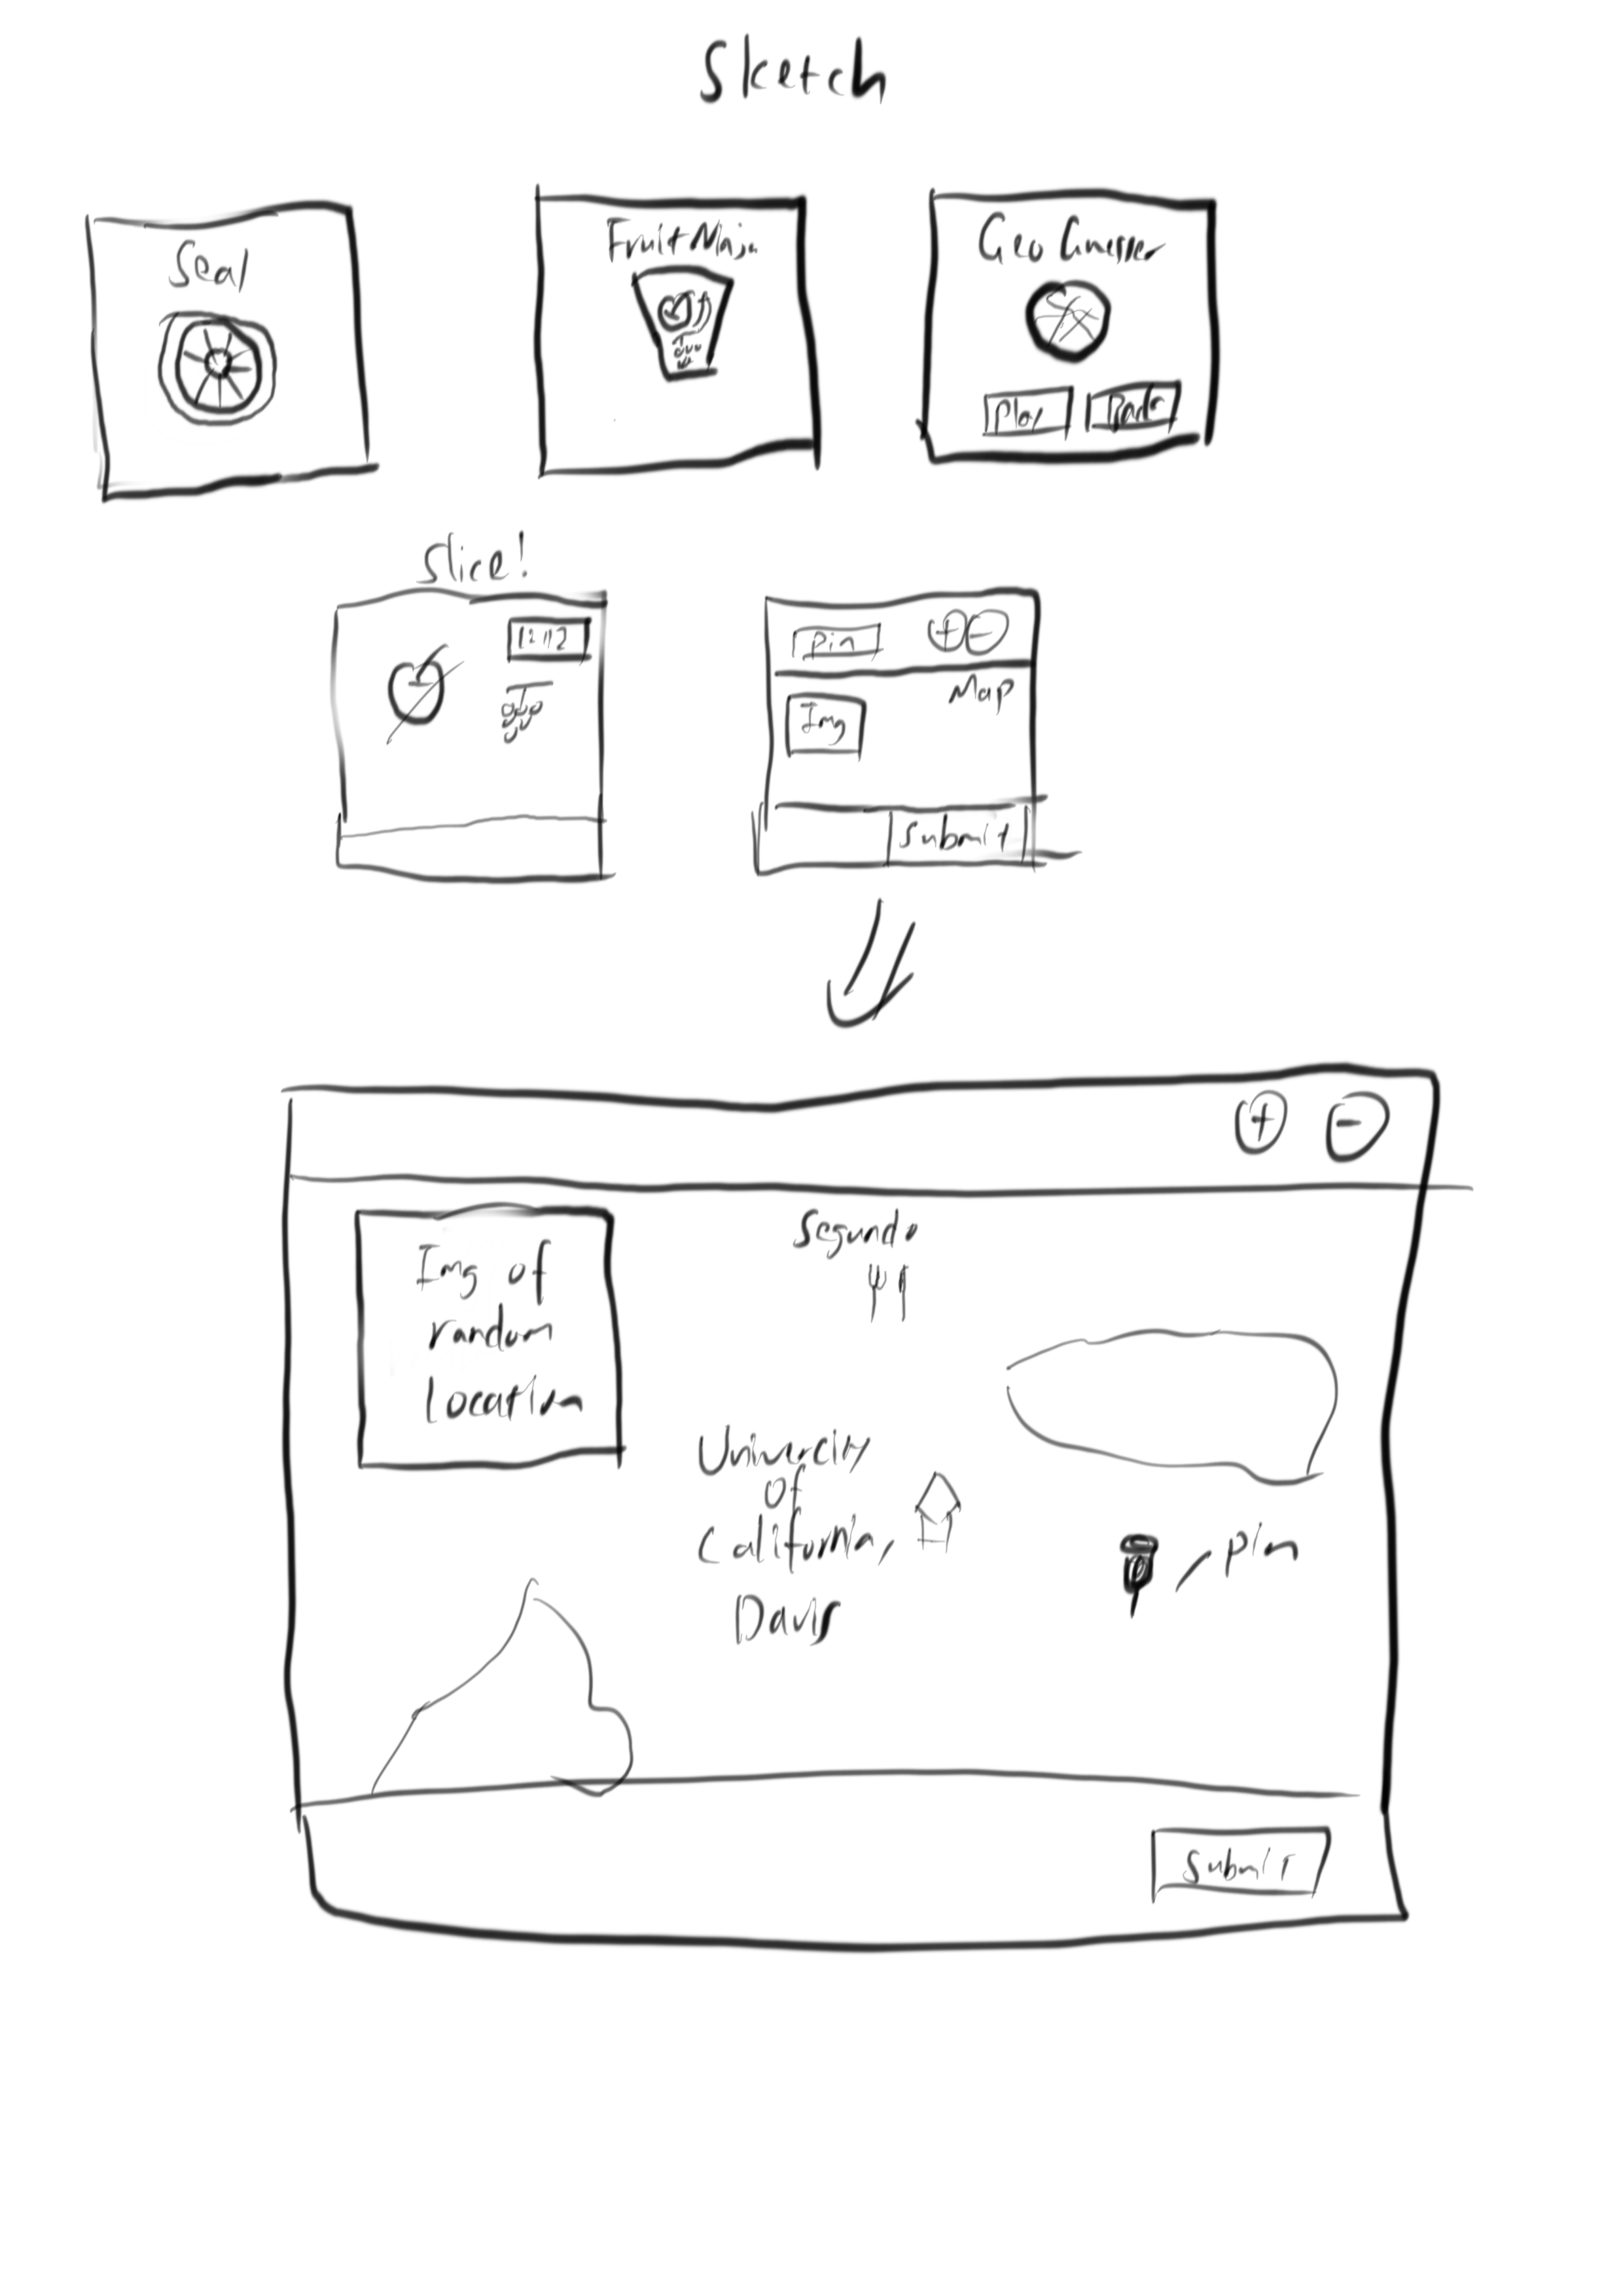 Sketch
Seal
Fruit Ninja
Geo Guesser
Play
Slice!
Pin
+ -
Map
Img
Submit
+ -
Segundo
Img of
random
location
Univercity
of
California,
Davis
pin
Submit